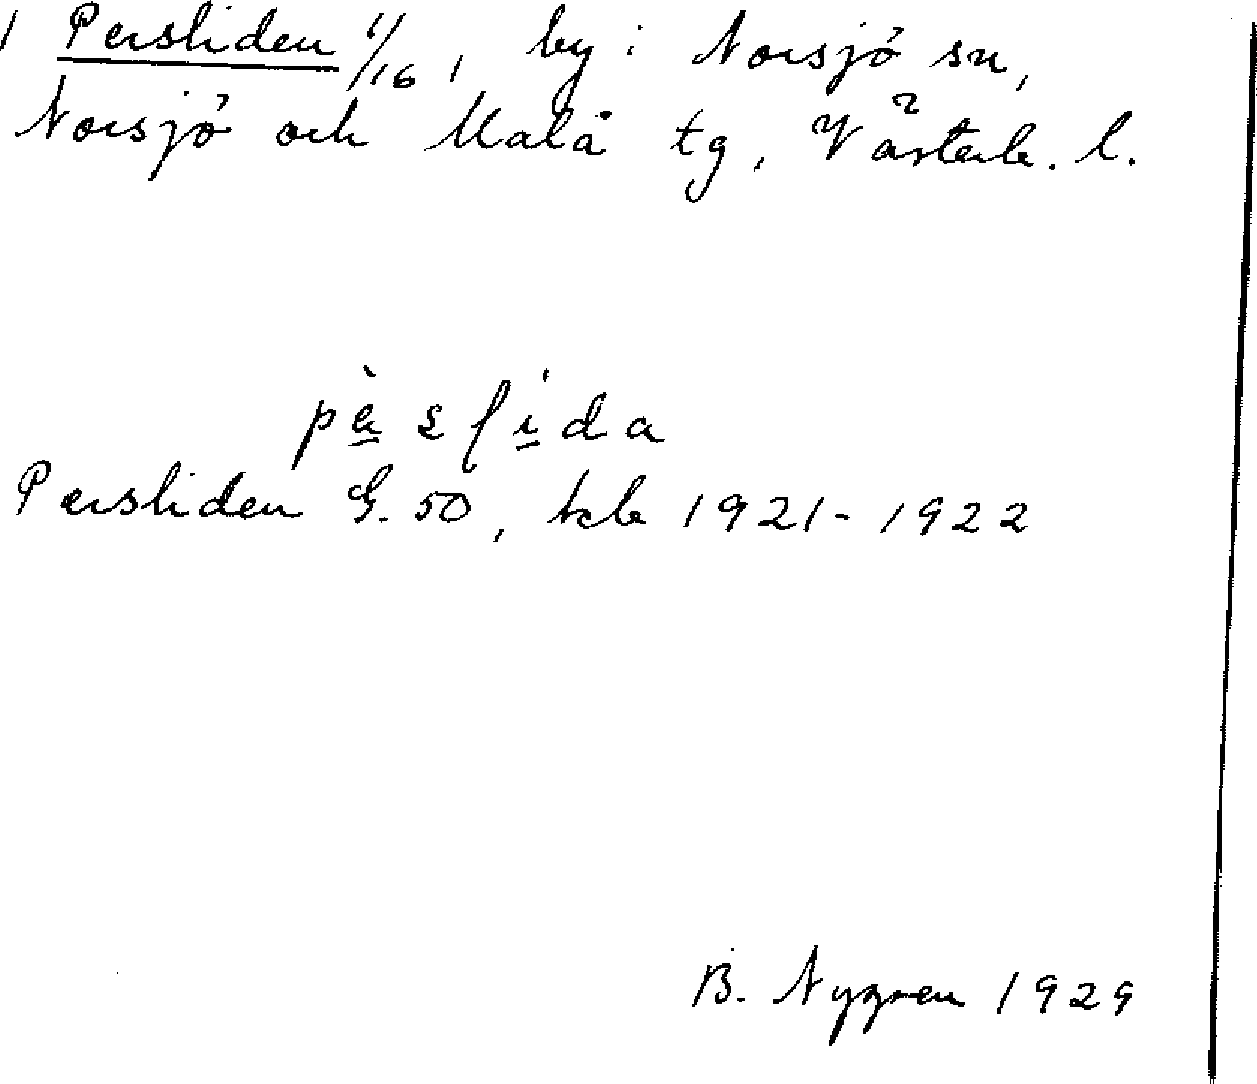 1 Persliden 1/16, by i Norsjö sn,
Norsjö och Malå tg, Västerb. l.
pèslida
Persliden G. 50, tab 1921-1922
B. Nygren 1929